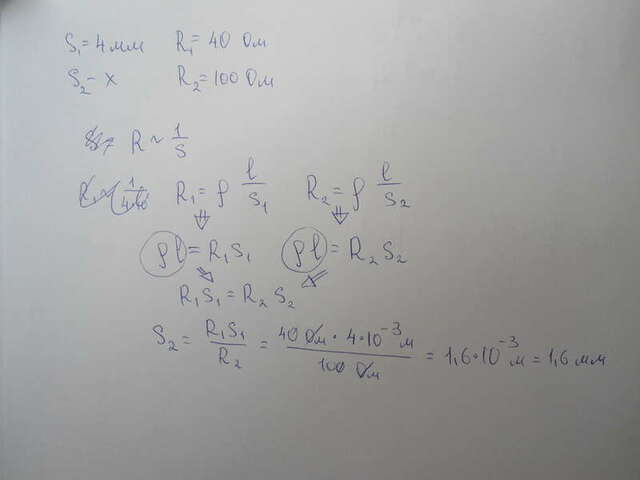 S₁ = 4 мм R₁ = 40 Ом
S₂ – x R₂ = 100 Ом
R ~ 1/S
R₁ = ρ l/S₁ R₂ = ρ l/S₂
ρl = R₁S₁ ρl = R₂S₂
R₁S₁ = R₂S₂
S₂ = R₁S₁/R₂ = 40 Ом · 4·10⁻³ м/100 Ом = 1,6·10⁻³ м = 1,6 мм